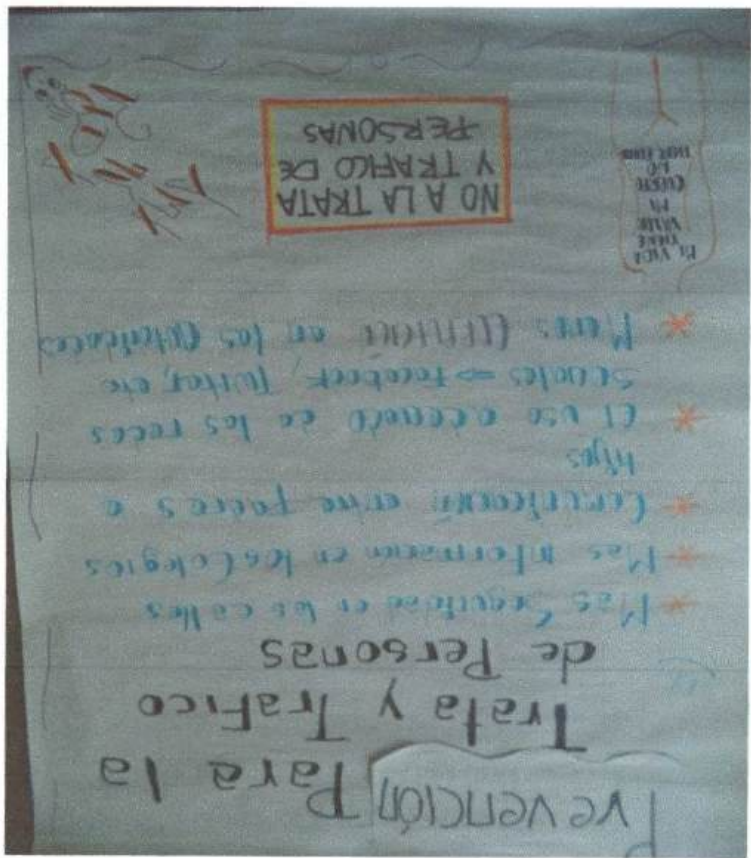 Prevención Para la
Trata y Trafico
de Personas
* Mas Seguridad en las calles
* Mas informacion en los Colegios
* Comunicación entre padres e
hijos
* El uso adecuado de las redes
sociales => Facebook, Twitter, etc
* Menos en las Autoridades
NO A LA TRATA
Y TRAFICO DE
PERSONAS
MI VIDA
TIENE
VALOR
MI
CUERPO
NO